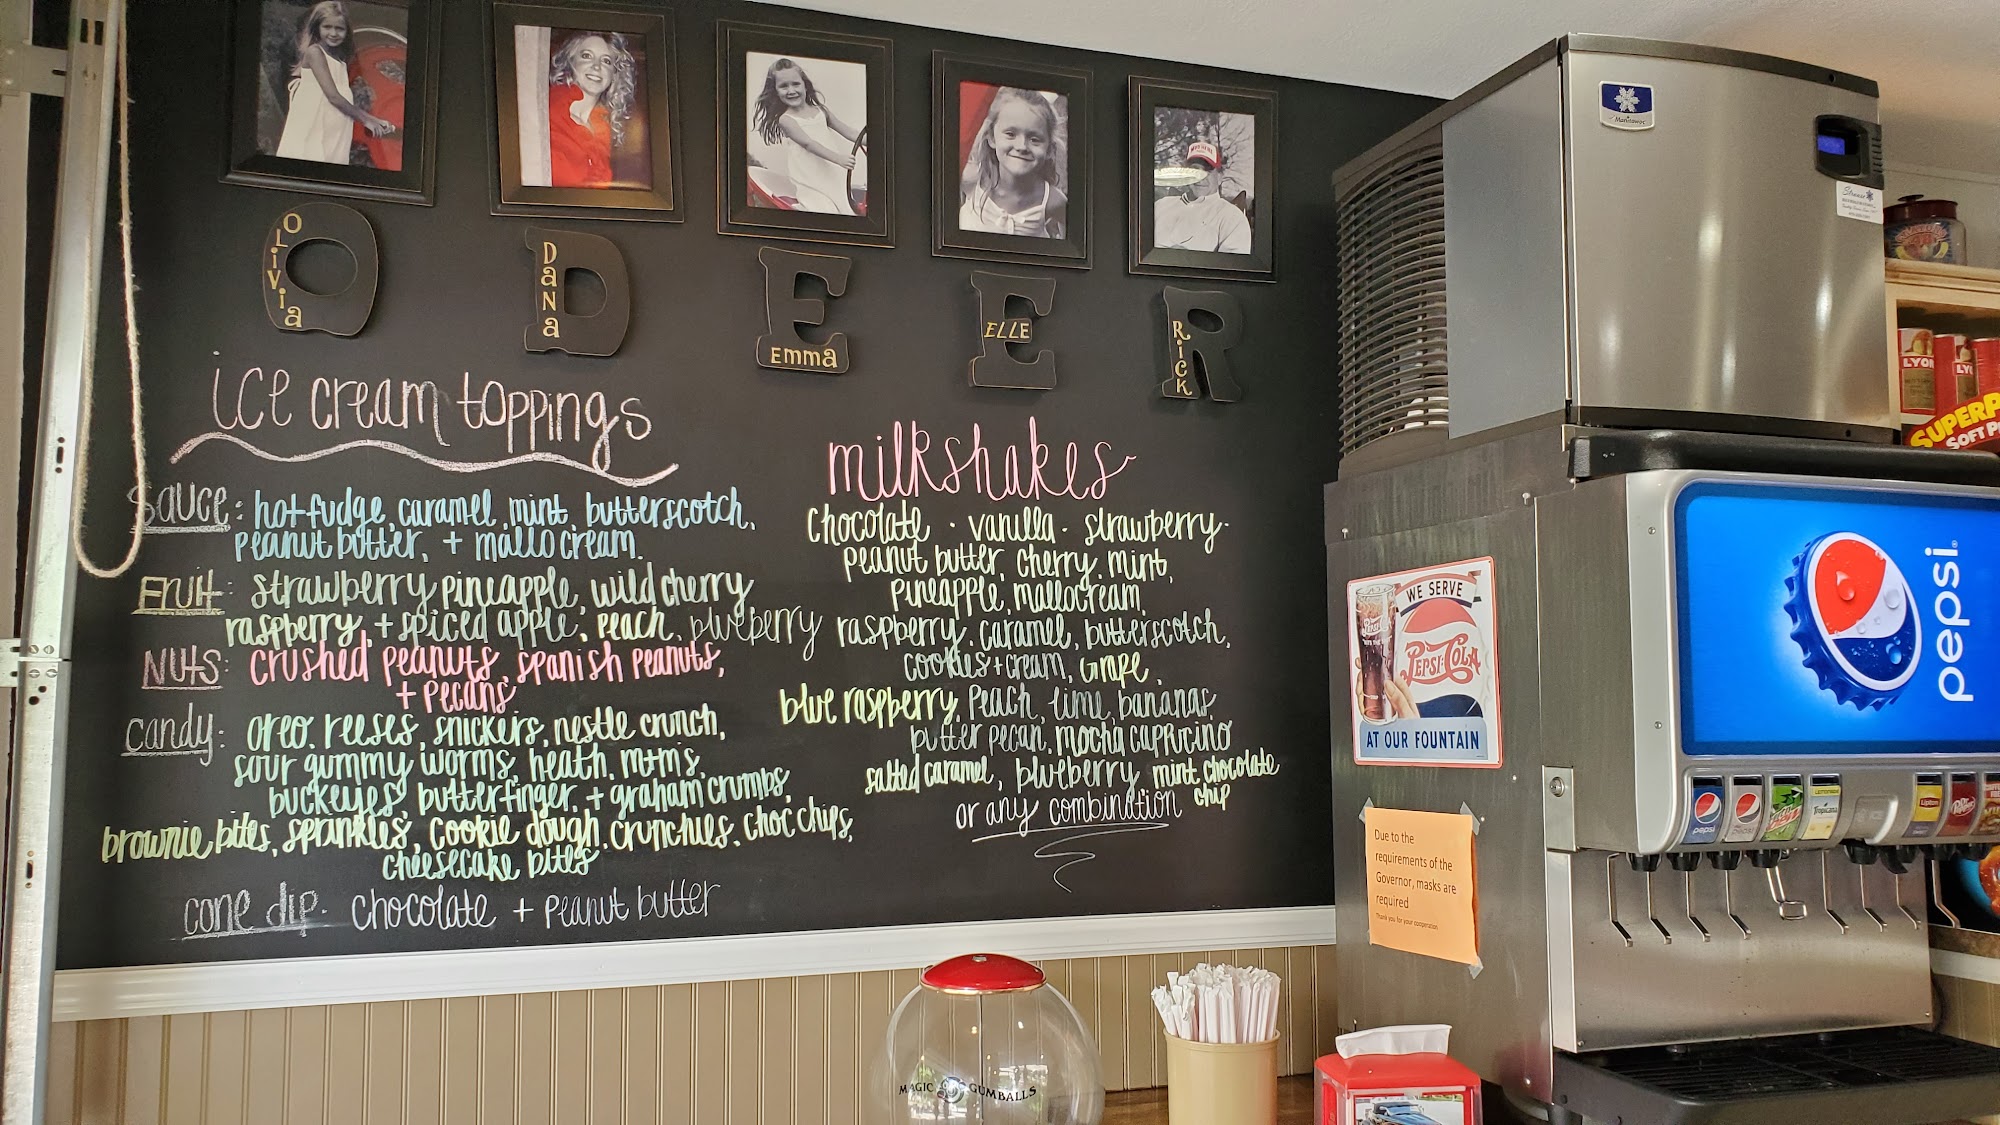 O D E E R
OLiViA
DaNa
Emma
ELLE
RicK
ice cream toppings
Sauce: hot fudge, caramel, mint, butterscotch,
peanut butter, + mallo cream.
Fruit: strawberry, pineapple, wild cherry
raspberry, + spiced apple, peach, blueberry
NUTS: crushed peanuts, spanish peanuts,
+ pecans
candy: oreo, reeses, snickers, nestle crunch,
sour gummy worms, heath, m+m's,
buckeyes, butterfinger, + graham crumbs,
brownie bites, sprinkles, cookie dough, crunchies, choc chips,
cheesecake bites
cone dip. chocolate + peanut butter
milkshakes
chocolate · vanilla · strawberry ·
peanut butter, cherry, mint,
pineapple, mallocream,
raspberry, caramel, butterscotch,
cookies+cream, Grape,
blue raspberry, peach, lime, bananas
butter pecan, mocha capricino
salted caramel, blueberry, mint chocolate
chip
or any combination
Manitowoc
WE SERVE
PEPSI-COLA
AT OUR FOUNTAIN
Due to the
requirements of the
Governor, masks are
required
Thank you for your cooperation
pepsi
pepsi
pepsi
Tropicana
Lipton
SUPERP
SOFT P
LYO
LY
MAGIC GUMBALLS